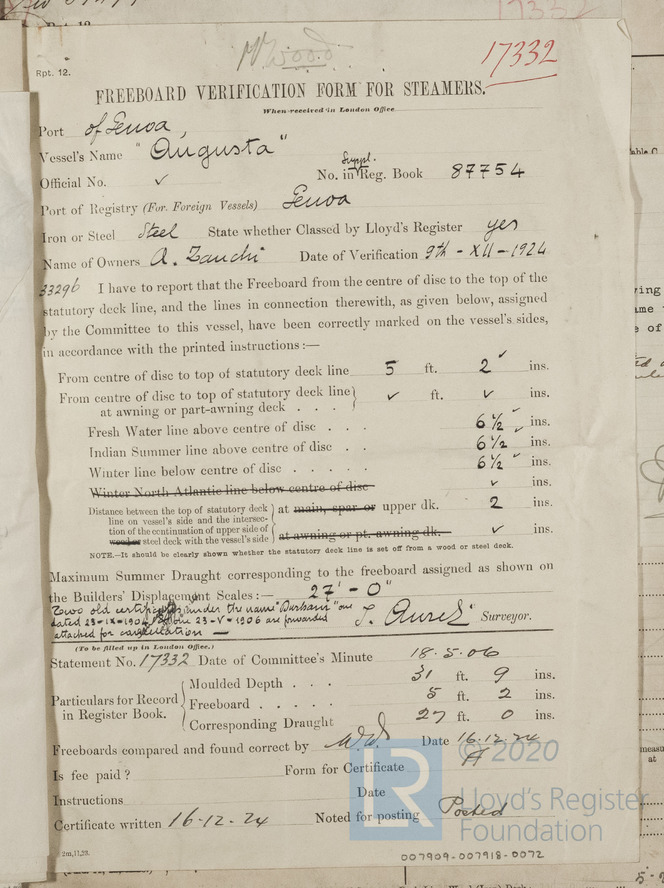 Wood
17332
Rpt. 12.
FREEBOARD VERIFICATION FORM FOR STEAMERS.
When received in London Office
Port of Genoa,
Vessel's Name "Augusta"
Official No. ✓ No. in Suppl. Reg. Book 87754
Port of Registry (For Foreign Vessels) Genoa
Iron or Steel Steel State whether Classed by Lloyd's Register yes
Name of Owners A. Zanchi Date of Verification 9th - XII - 1924
33296 I have to report that the Freeboard from the centre of disc to the top of the
statutory deck line, and the lines in connection therewith, as given below, assigned
by the Committee to this vessel, have been correctly marked on the vessel's sides,
in accordance with the printed instructions :—
From centre of disc to top of statutory deck line 5 ft. 2 ✓ ins.
From centre of disc to top of statutory deck line ✓ ft. ✓ ins.
at awning or part-awning deck . . .
Fresh Water line above centre of disc . . . 6½ ✓ ins.
Indian Summer line above centre of disc . . 6½ ✓ ins.
Winter line below centre of disc . . . . . 6½ ✓ ins.
Winter North Atlantic line below centre of disc ✓ ins.
Distance between the top of statutory deck
line on vessel's side and the intersec-
tion of the continuation of upper side of
wooden steel deck with the vessel's side
at main, spar or upper dk. 2 ins.
at awning or pt. awning dk. ✓ ins.
NOTE.—It should be clearly shown whether the statutory deck line is set off from a wood or steel deck.
Maximum Summer Draught corresponding to the freeboard assigned as shown on
the Builders' Displacement Scales :— 27' - 0"
Two old certificates under the name "Durham" one
dated 23-IX-1904 one 23-V-1906 are forwarded
attached for cancellation —
Surveyor.
(To be filled up in London Office.)
Statement No. 17332 Date of Committee's Minute 18.5.06
Particulars for Record
in Register Book.
Moulded Depth . . . 31 ft. 9 ins.
Freeboard . . . . . 5 ft. 2 ins.
Corresponding Draught 27 ft. 0 ins.
Freeboards compared and found correct by Date 16.12.24
Is fee paid ? Form for Certificate A
Instructions Date
Certificate written 16-12-24 Noted for posting Posted
2m,11,23.
© 2020
Lloyd's Register
Foundation
007909-007918-0072